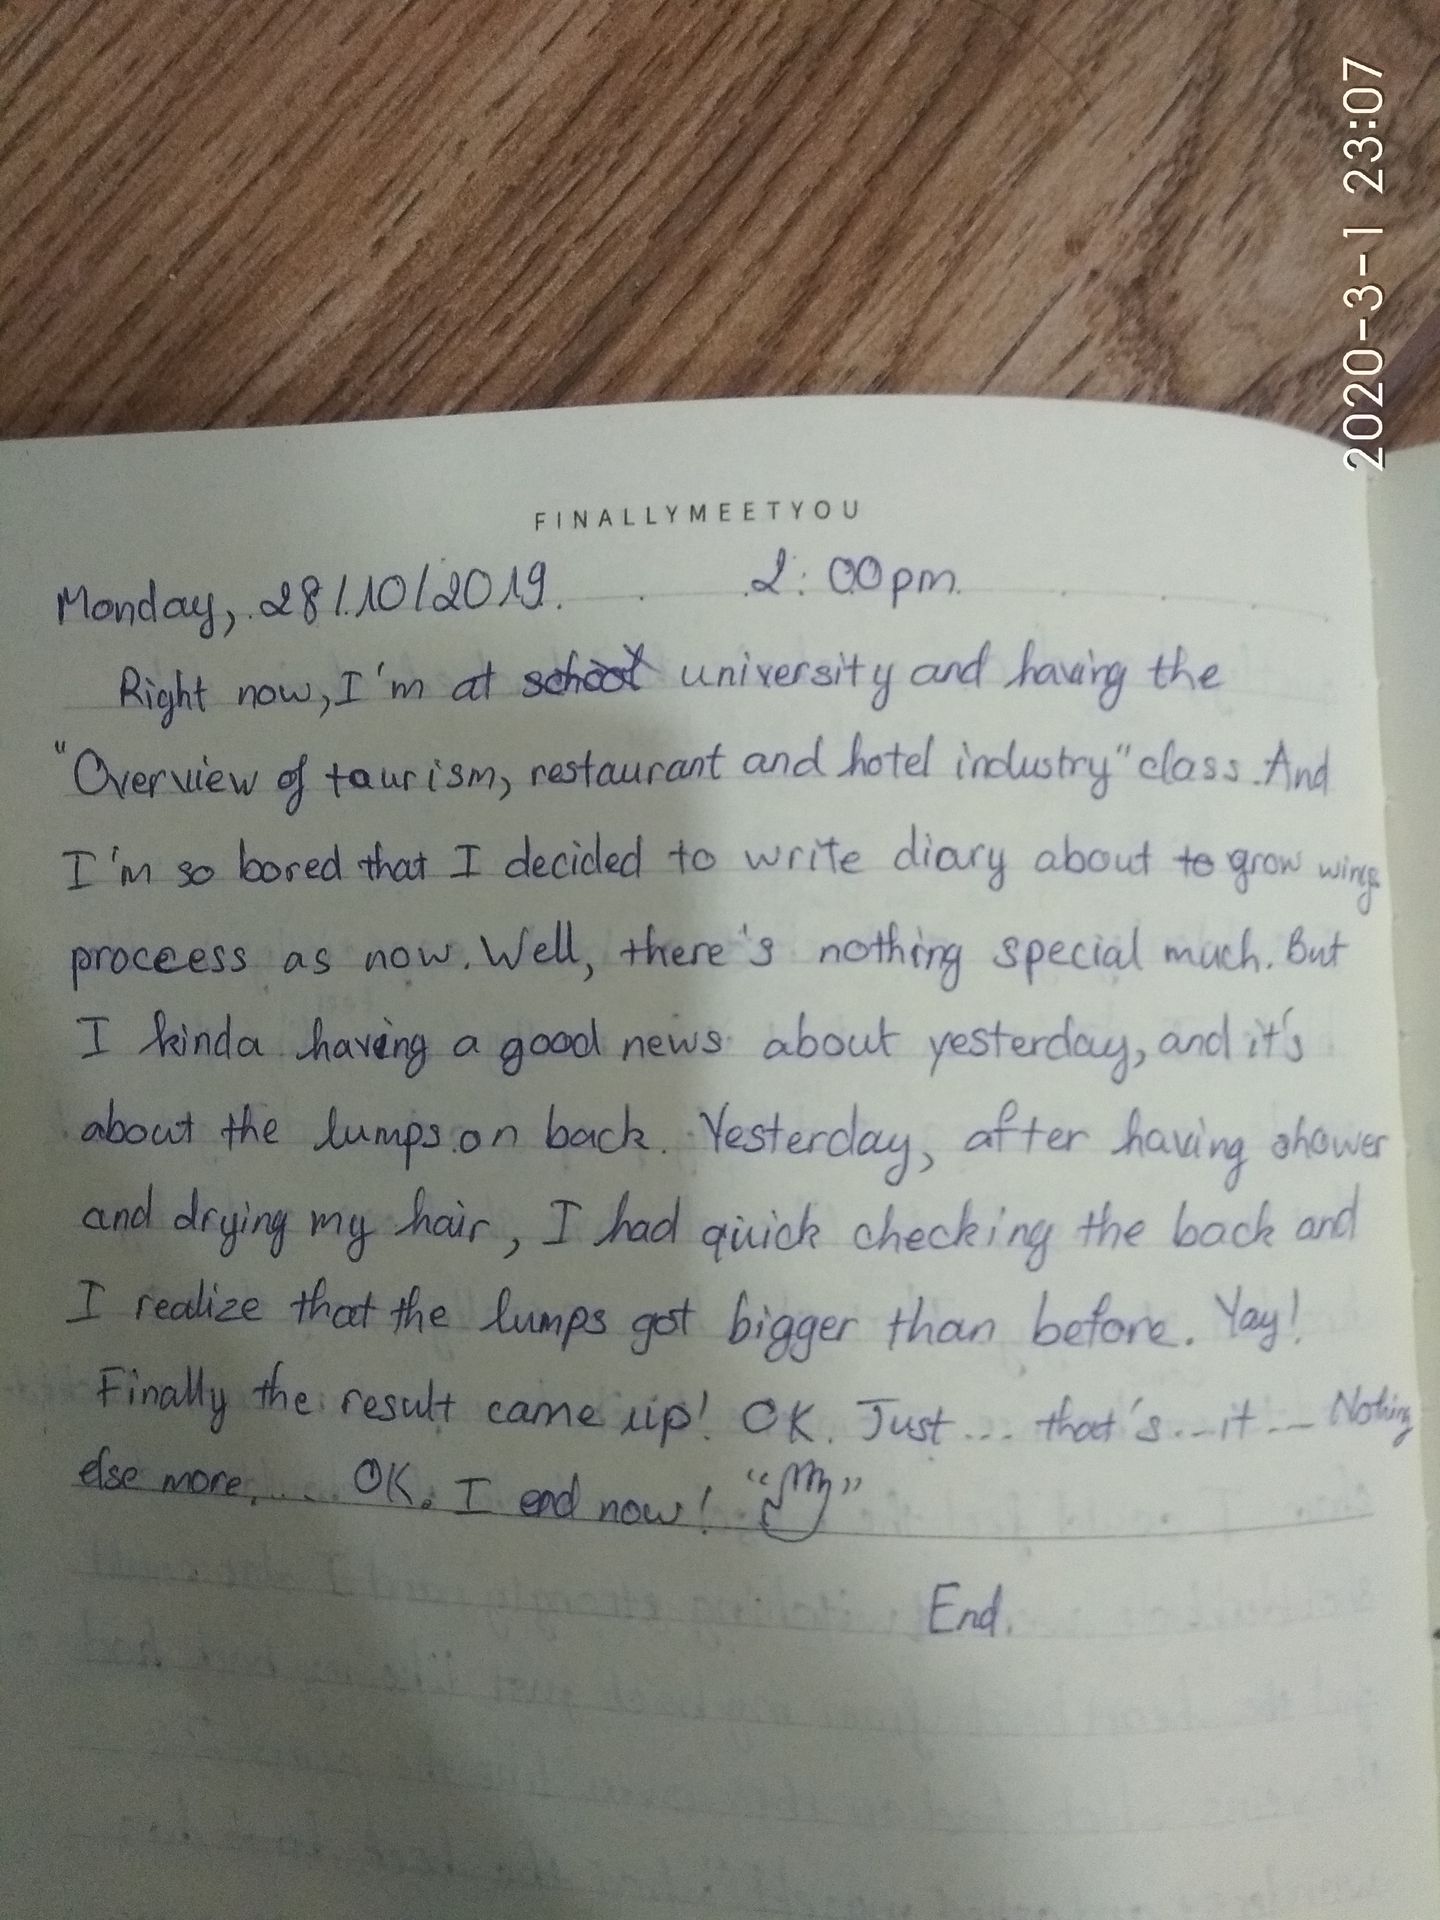 2020-3-1 23:07
FINALLYMEETYOU
Monday, 28/10/2019. 2:00pm.
Right now, I'm at school university and having the
"Overview of taurism, restaurant and hotel industry" class. And
I'm so bored that I decided to write diary about to grow wings
proceess as now. Well, there's nothing special much. But
I kinda having a good news about yesterday, and it's
about the lumps on back. Yesterday, after having shower
and drying my hair, I had quick checking the back and
I realize that the lumps got bigger than before. Yay!
Finally the result came up! OK. Just ... that's ... it ... Nothing
else more. ... OK. I end now! " "
End.